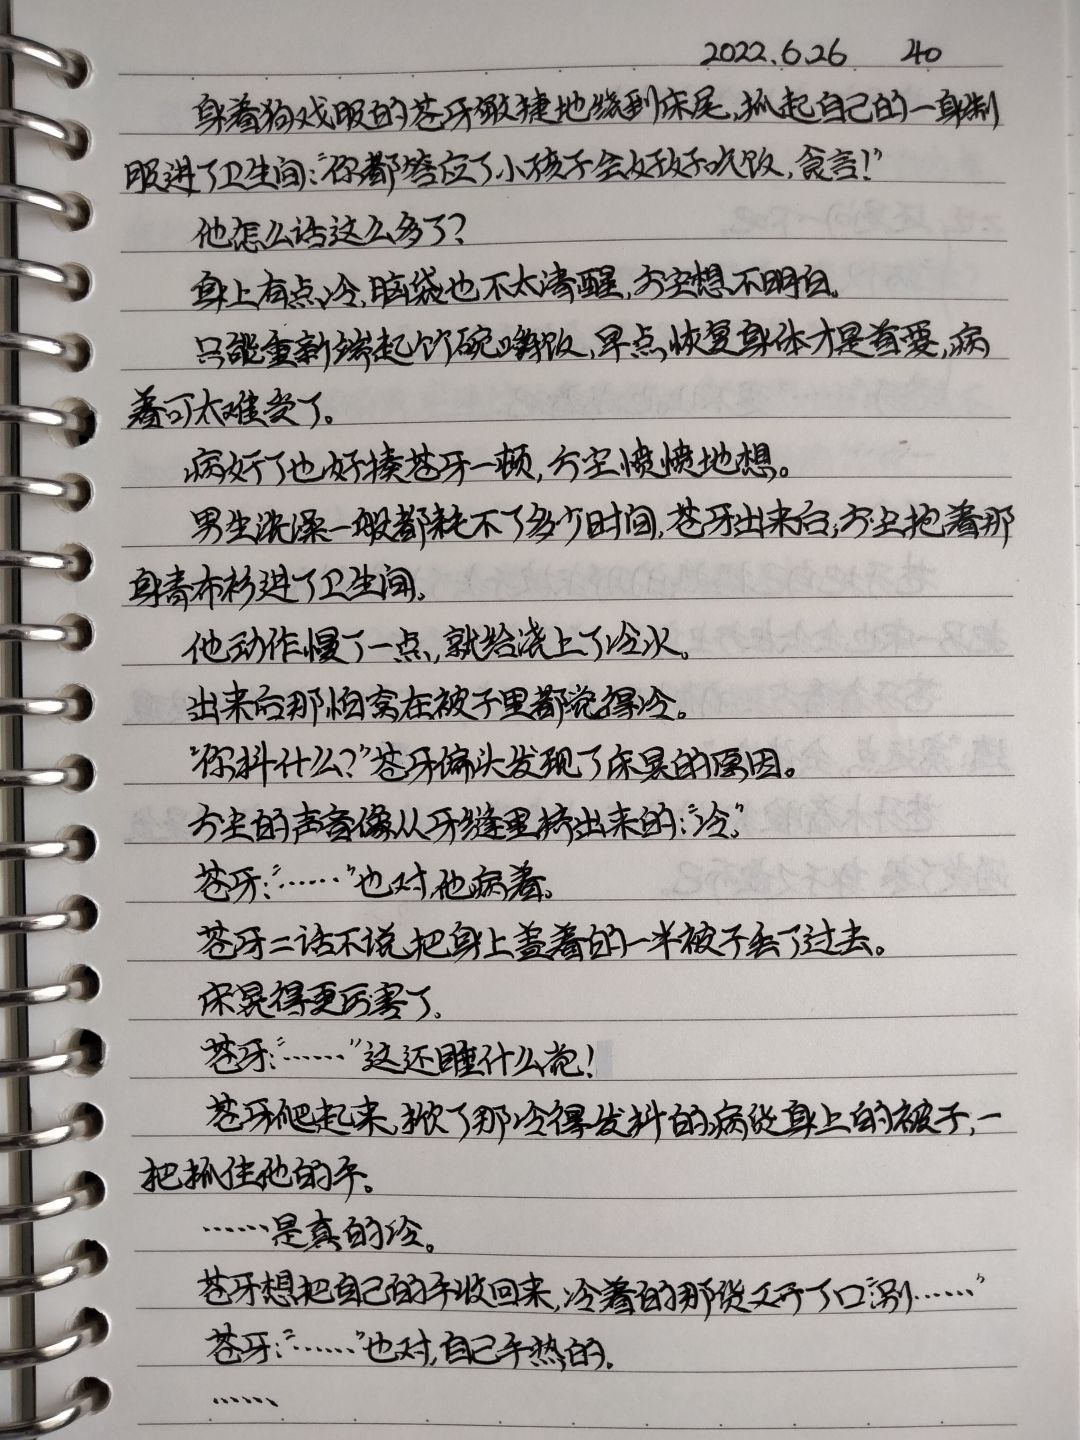 2022.6.26 40
身着狗戏服的苍牙敏捷地绕到床尾,抓起自己的一身制
服进了卫生间:“你都答应了小孩子会好好吃饭,食言!”
他怎么话这么多了?
身上有点冷,脑袋也不太清醒,方尘想不明白。
只能重新端起个碗嚼饭,早点恢复身体才是首要,病
着可太难受了。
病好了也好揍苍牙一顿,方尘愤愤地想。
男生洗澡一般都耗不了多少时间,苍牙出来后,方尘抱着那
身青布衫进了卫生间。
他动作慢了一点,就给浇上了冷水。
出来后那怕窝在被子里都觉得冷。
“你抖什么?”苍牙偏头发现了床晃的原因。
方尘的声音像从牙缝里挤出来的:“冷”
苍牙:“……”也对,他病着。
苍牙二话不说把身上盖着的一半被子丢了过去。
床晃得更厉害了。
苍牙:“……”这还睡什么觉!
苍牙爬起来,掀了那冷得发抖的病货身上的被子,一
把抓住他的手。
……是真的冷。
苍牙想把自己的手收回来,冷着的那货又开了口:“别……”
苍牙:“……”也对,自己手热的。
……